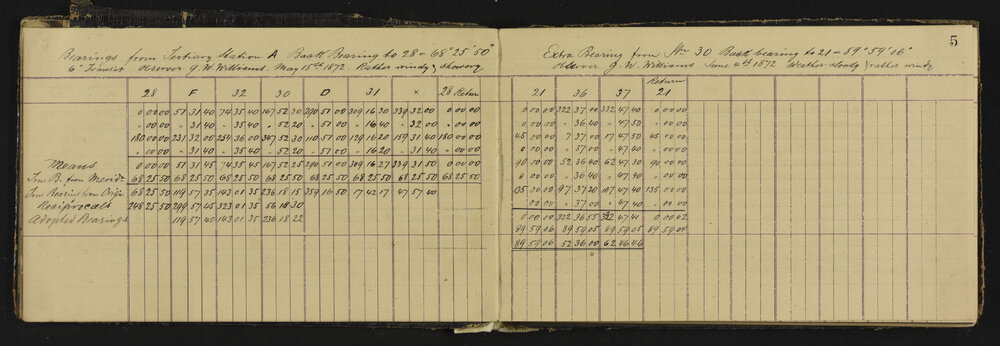 Bearings from Tertiary Station A Back Bearing to 28 – 68° 25' 50"
6" Transit Observer J. W. Williams. May 15th 1872 Rather windy & showery
28 F 32 30 D 31 × 28 Return
0 00 00 51 31 40 74 35 40 167 52 30 290 51 00 309 16 30 339 32 00 0 00 00
" 00 00 " 31 40 " 35 40 " 52 20 " 51 00 " 16 40 " 32 00 " 00 00
180 00 00 231 32 00 254 36 00 347 52 30 110 51 00 129 16 20 159 31 40 180 00 00
" 00 00 " 31 40 " 35 40 " 52 20 " 51 00 " 16 20 " 31 40 " 00 00
Means 0 00 00 51 31 45 74 35 45 167 52 25 290 51 00 309 16 27 339 31 50 0 00 00
68 25 50 68 25 50 68 25 50 68 25 50 68 25 50 68 25 50 68 25 50 68 25 50
68 25 50 119 57 35 143 01 35 236 18 15 359 16 50 17 42 17 47 57 40
Reciprocals 248 25 50 299 57 45 323 01 35 56 18 30
Adopted Bearings 119 57 40 143 01 35 236 18 22
5
Extra Bearing from No 30 Back bearing to 21 – 89° 59' 06"
Observer J. W. Williams June 4th 1872 Weather cloudy & rather windy
21 36 37 Return 21
0 00 00 322 37 00 332 47 40 0 00 00
" 00 00 " 36 40 " 47 50 " 00 00
45 00 00 7 37 00 17 47 50 45 00 00
" 00 00 " 37 00 " 47 40 " 00 00
90 00 00 52 36 40 62 47 30 90 00 00
" 00 00 " 36 40 " 47 40 " 00 00
135 00 00 97 37 20 107 47 40 135 00 00
" 00 00 " 37 00 " 47 40 " 00 00
0 00 00 322 36 55 332 47 41 0 00 02
89 59 06 89 59 05 89 59 05 89 59 04
89 59 06 52 36 00 62 46 46